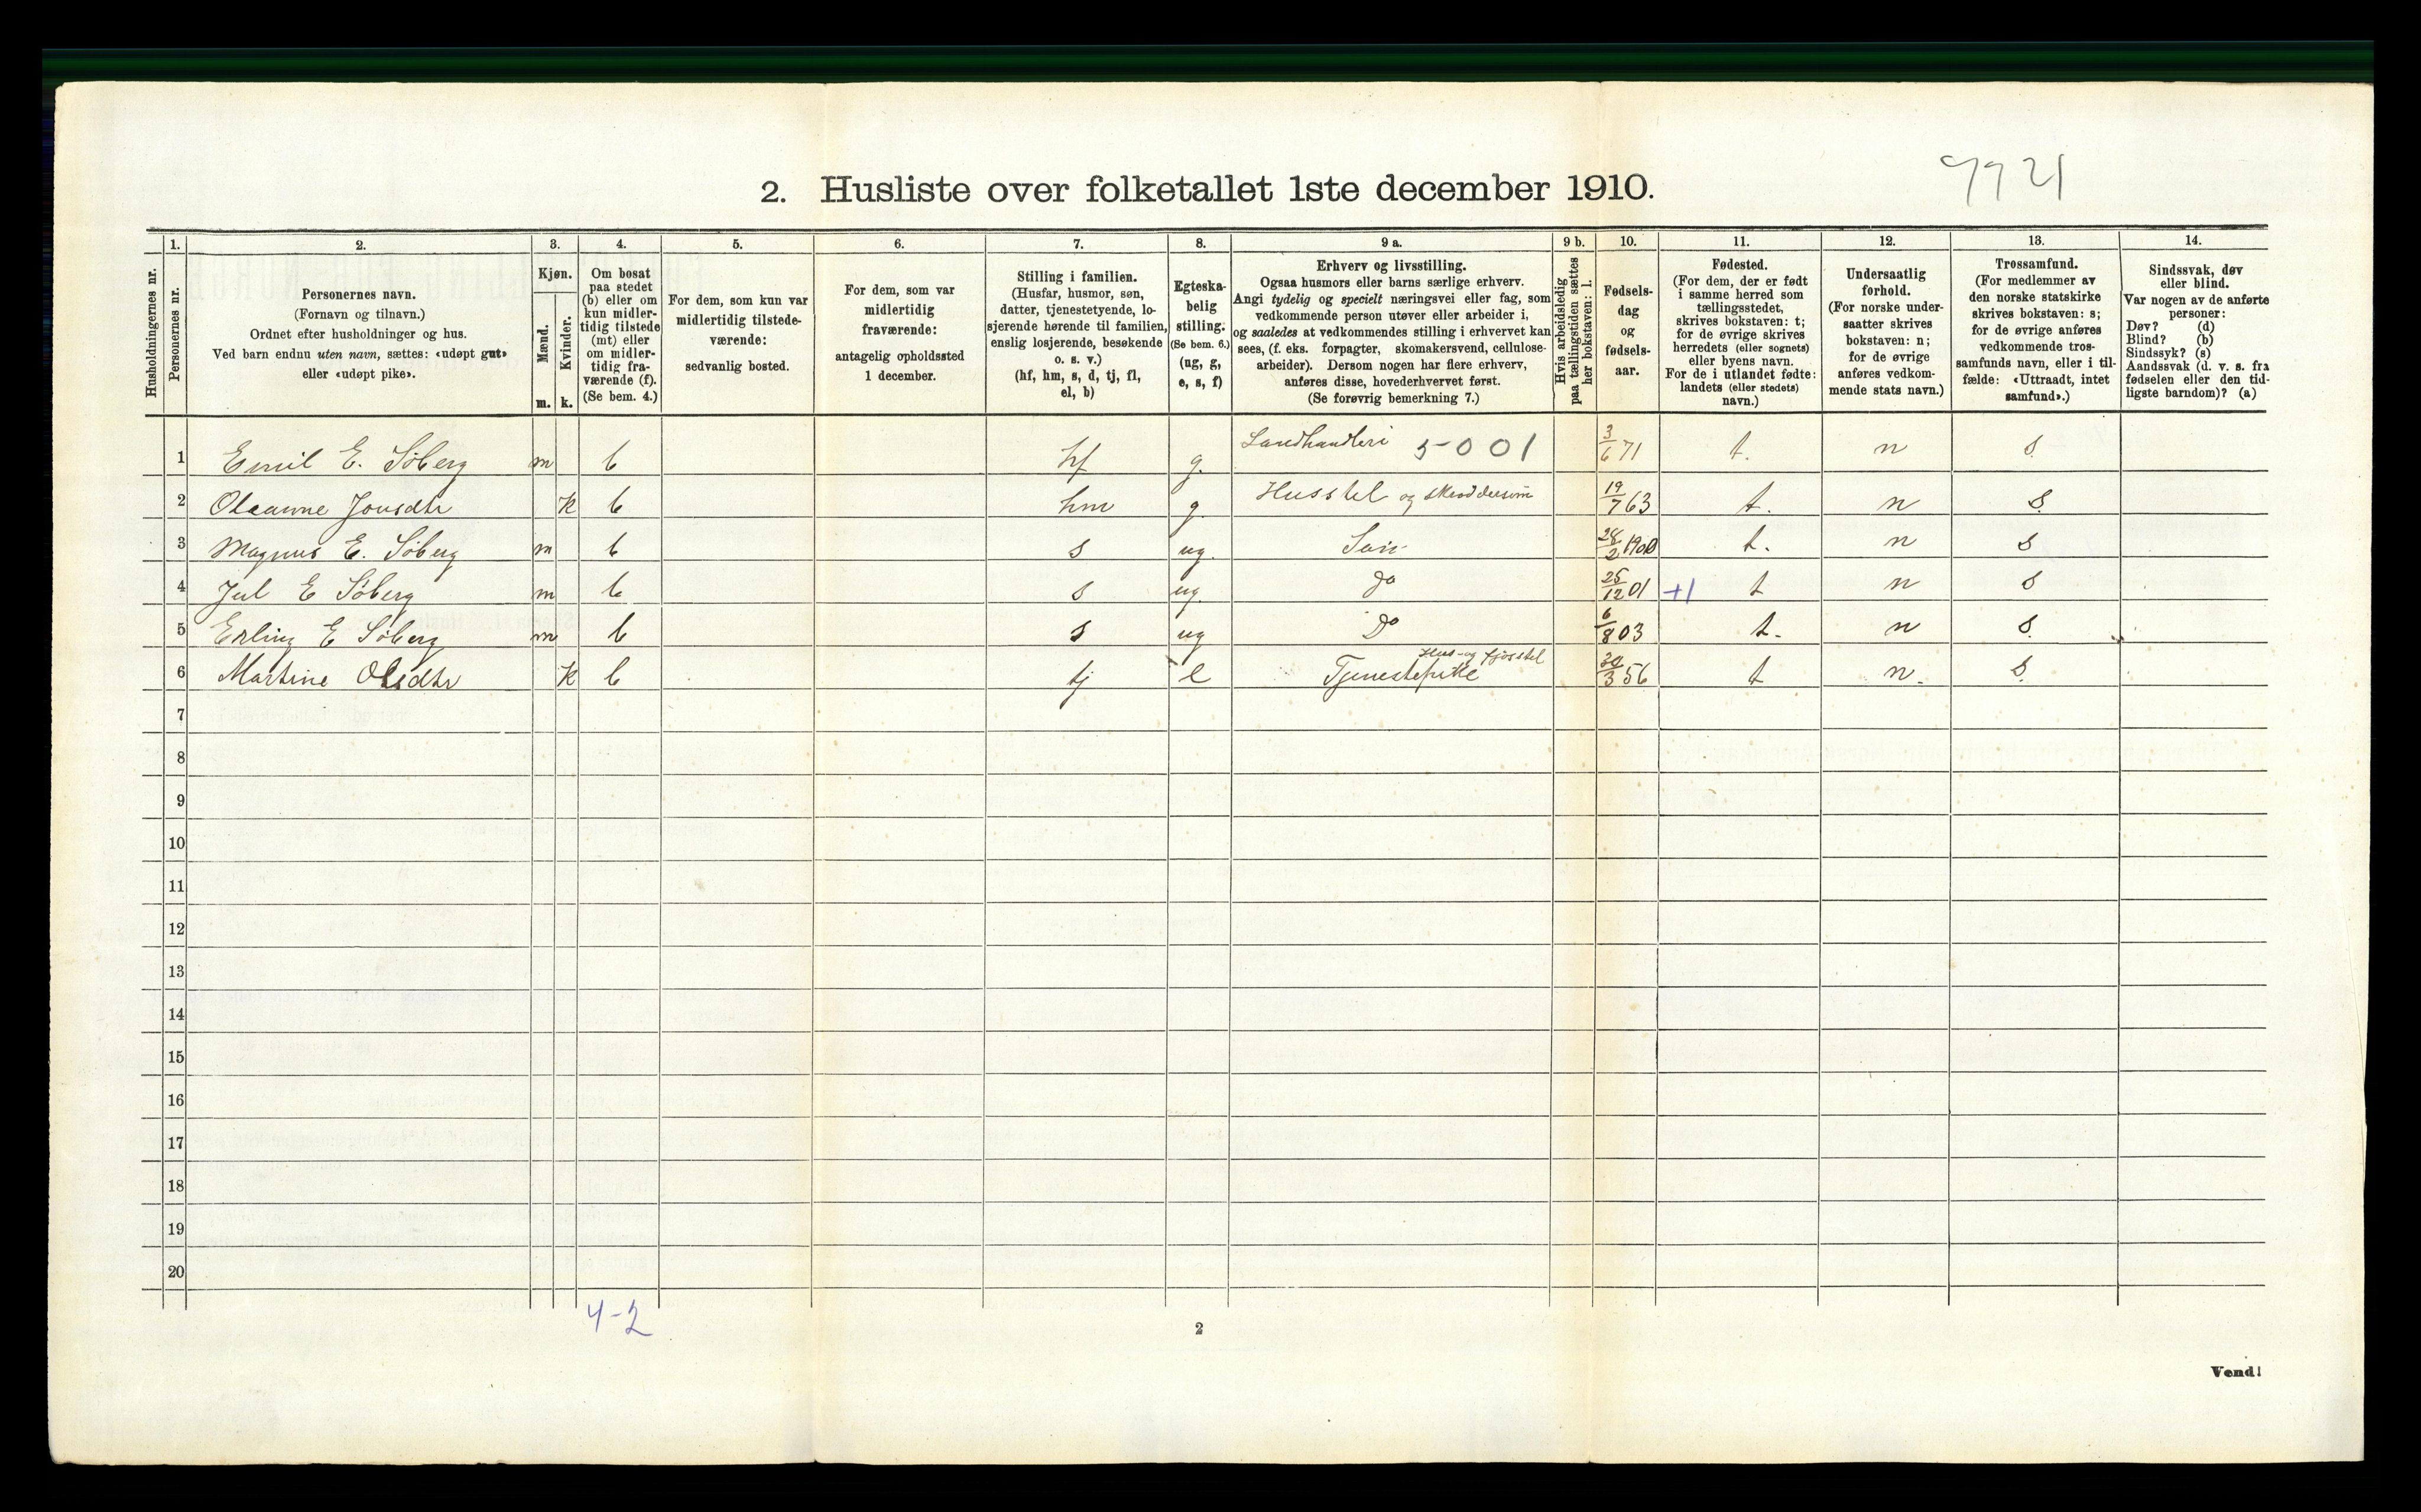 7721
2. Husliste over folketallet 1ste december 1910.
1. 2. 3. 4. 5. 6. 7. 8. 9 a. 9 b. 10. 11. 12. 13. 14.
Husholdningernes nr.
Personernes nr.
Personernes navn.
(Fornavn og tilnavn.)
Ordnet efter husholdninger og hus.
Ved barn endnu uten navn, sættes: «udøpt gut»
eller «udøpt pike».
Kjøn.
Mænd.
Kvinder.
m. k.
Om bosat
paa stedet
(b) eller om
kun midler-
tidig tilstede
(mt) eller
om midler-
tidig fra-
værende (f).
(Se bem. 4.)
For dem, som kun var
midlertidig tilstede-
værende:
sedvanlig bosted.
For dem, som var
midlertidig
fraværende:
antagelig opholdssted
1 december.
Stilling i familien.
(Husfar, husmor, søn,
datter, tjenestetyende, lo-
sjerende hørende til familien,
enslig losjerende, besøkende
o. s. v.)
(hf, hm, s, d, tj, fl,
el, b)
Egteska-
belig
stilling.
(Se bem. 6.)
(ug, g,
e, s, f)
Erhverv og livsstilling.
Ogsaa husmors eller barns særlige erhverv.
Angi tydelig og specielt næringsvei eller fag, som
vedkommende person utøver eller arbeider i,
og saaledes at vedkommendes stilling i erhvervet kan
sees, (f. eks. forpagter, skomakersvend, cellulose-
arbeider). Dersom nogen har flere erhverv,
anføres disse, hovederhvervet først.
(Se forøvrig bemerkning 7.)
Hvis arbeidsledig
paa tællingstiden sættes
her bokstaven: l.
Fødsels-
dag
og
fødsels-
aar.
Fødested.
(For dem, der er født
i samme herred som
tællingsstedet,
skrives bokstaven: t;
for de øvrige skrives
herredets (eller sognets)
eller byens navn.
For de i utlandet fødte:
landets (eller stedets)
navn.)
Undersaatlig
forhold.
(For norske under-
saatter skrives
bokstaven: n;
for de øvrige
anføres vedkom-
mende stats navn.)
Trossamfund.
(For medlemmer av
den norske statskirke
skrives bokstaven: s;
for de øvrige anføres
vedkommende tros-
samfunds navn, eller i til-
fælde: «Uttraadt, intet
samfund».)
Sindssvak, døv
eller blind.
Var nogen av de anførte
personer:
Døv? (d)
Blind? (b)
Sindssyk? (s)
Aandssvak (d. v. s. fra
fødselen eller den tid-
ligste barndom)? (a)
1 Emil E. Søberg m b hf g. Landhandleri 5-001 3/6 71 t. n s.
2 Oleanne Jonsdtr k b hm g. Husstel og skreddersøm 19/7 63 t. n s.
3 Magnus E. Søberg m b s ug. Søn 28/2 1900 t. n s
4 Jul E Søberg m b s ug. Do 25/12 01 +1 t n s
5 Erling E Søberg m b s ug Do 6/8 03 t. n s.
Hus- og fjøsstel
6 Martine Olsdtr k b tj e Tjenestepike 30/3 56 t n. s.
7
8
9
10
11
12
13
14
15
16
17
18
19
20
4-2
2
Vend!